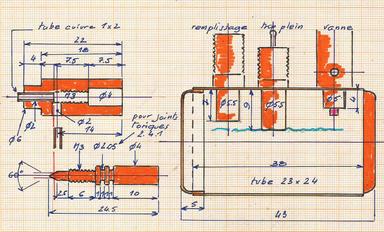 tube cuivre 1x2
22
18
4
7.5
7.5
M3
Ø4
Ø2
Ø2
Ø6
14
pour joints
toriques
2.4.1
M3
Ø2.05
Ø4
60°
2.5
6
1
1
1
1
10
24.5
remplissage
plein
vanne
Ø5.5
Ø5.5
Ø5
9
38
tube 23x24
5
43